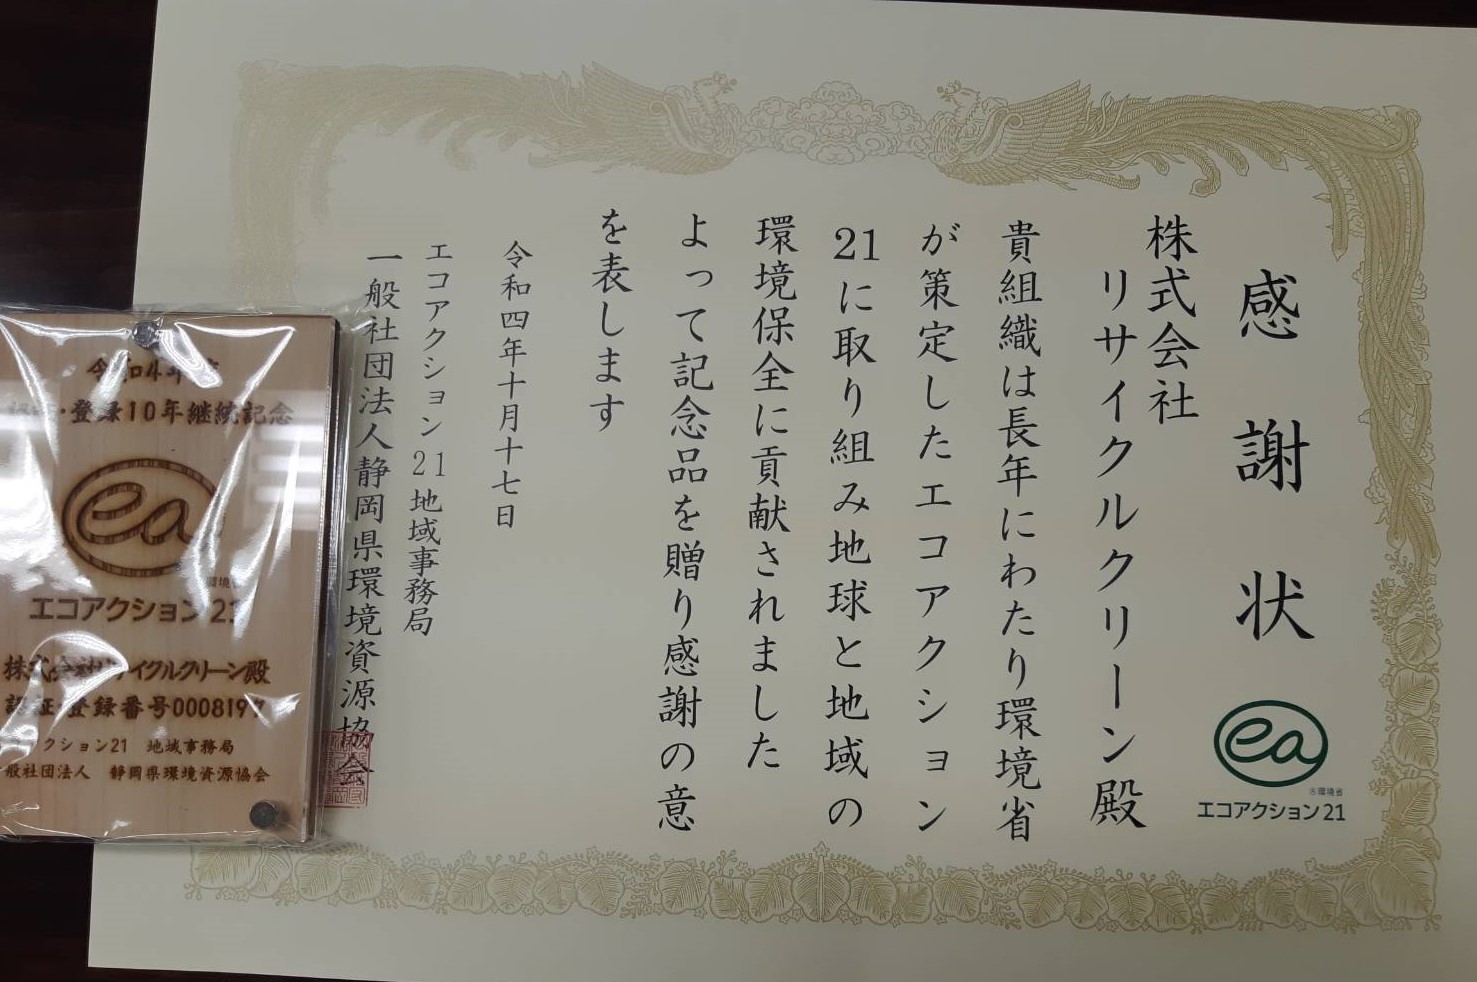 感謝状
株式会社
リサイクルクリーン殿
貴組織は長年にわたり環境省
が策定したエコアクション
21に取り組み地球と地域の
環境保全に貢献されました
よって記念品を贈り感謝の意
を表します
令和四年十月十七日
エコアクション21地域事務局
一般社団法人静岡県環境資源協会
ea
®環境省
エコアクション21
令和4年度
・登録10年継続記念
ea
環境省
エコアクション21
株式会社リサイクルクリーン殿
認証・登録番号0008197
クション21 地域事務局
般社団法人 静岡県環境資源協会